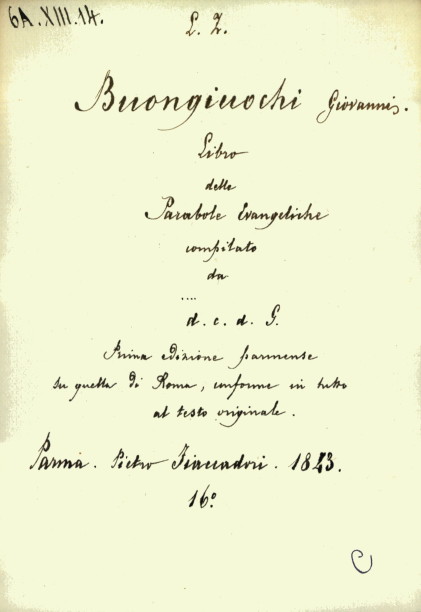 6A.XIII.14.
L. Z.
Buongiuochi Giovanni.
Libro
delle
Parabole Evangeliche
compilato
da
....
d. c. d. G.
Prima edizione parmense
su quella di Roma, conforme in tutto
al testo originale.
Parma. Pietro Fiaccadori. 1843.
16°
C